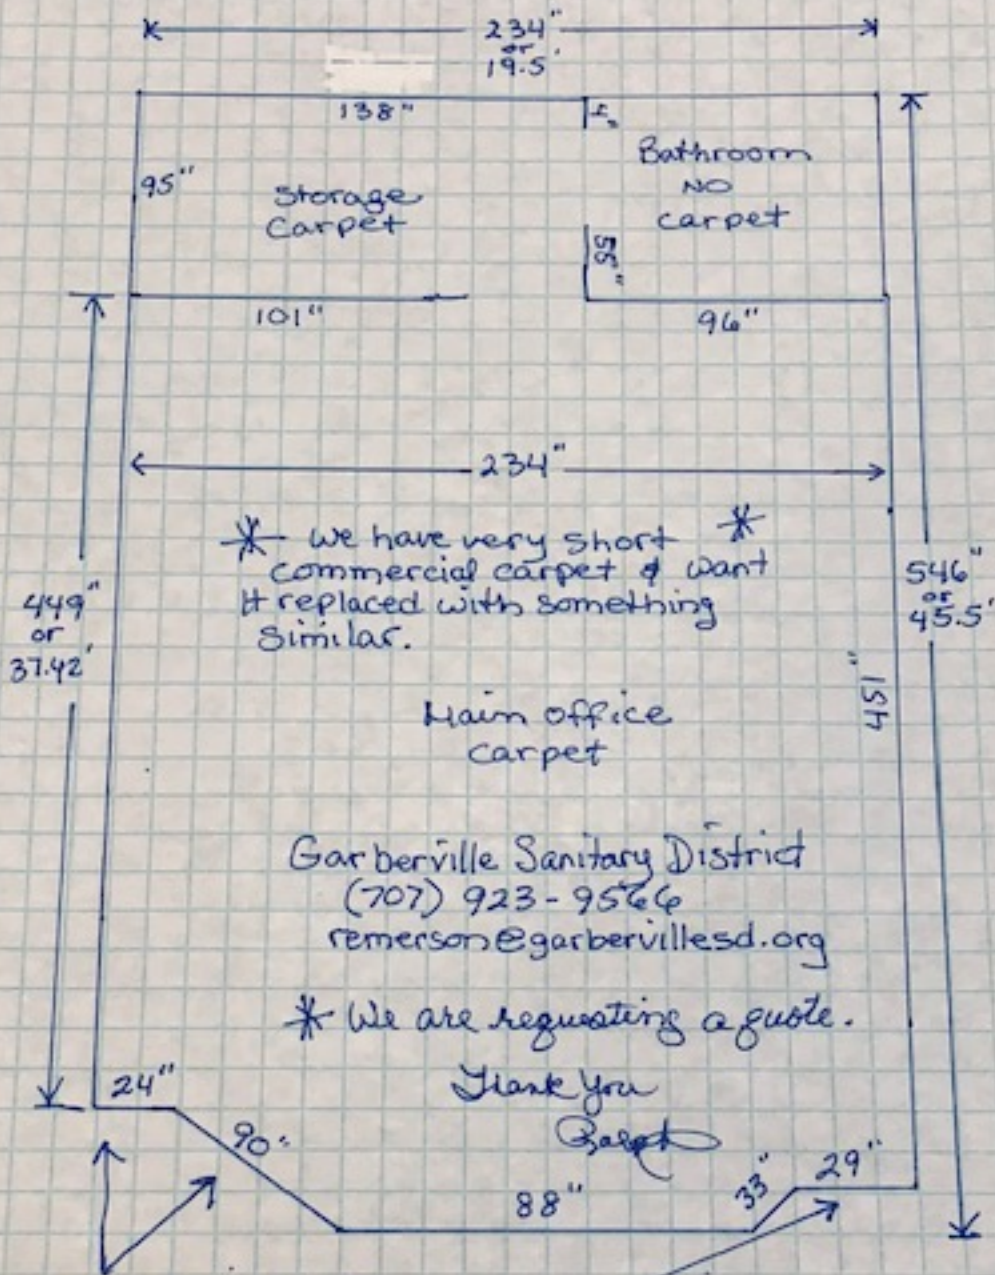 234"
or
19.5'
138"
4"
Bathroom
NO
carpet
95"
Storage
Carpet
55"
101"
96"
234"
* We have very short *
commercial carpet & want
it replaced with something
similar.
449"
or
37.42'
546"
or
45.5'
451"
Main office
carpet
Garberville Sanitary District
(707) 923-9566
remerson@garbervillesd.org
* We are requesting a quote.
Thank You
Ralph
24"
90"
88"
33"
29"